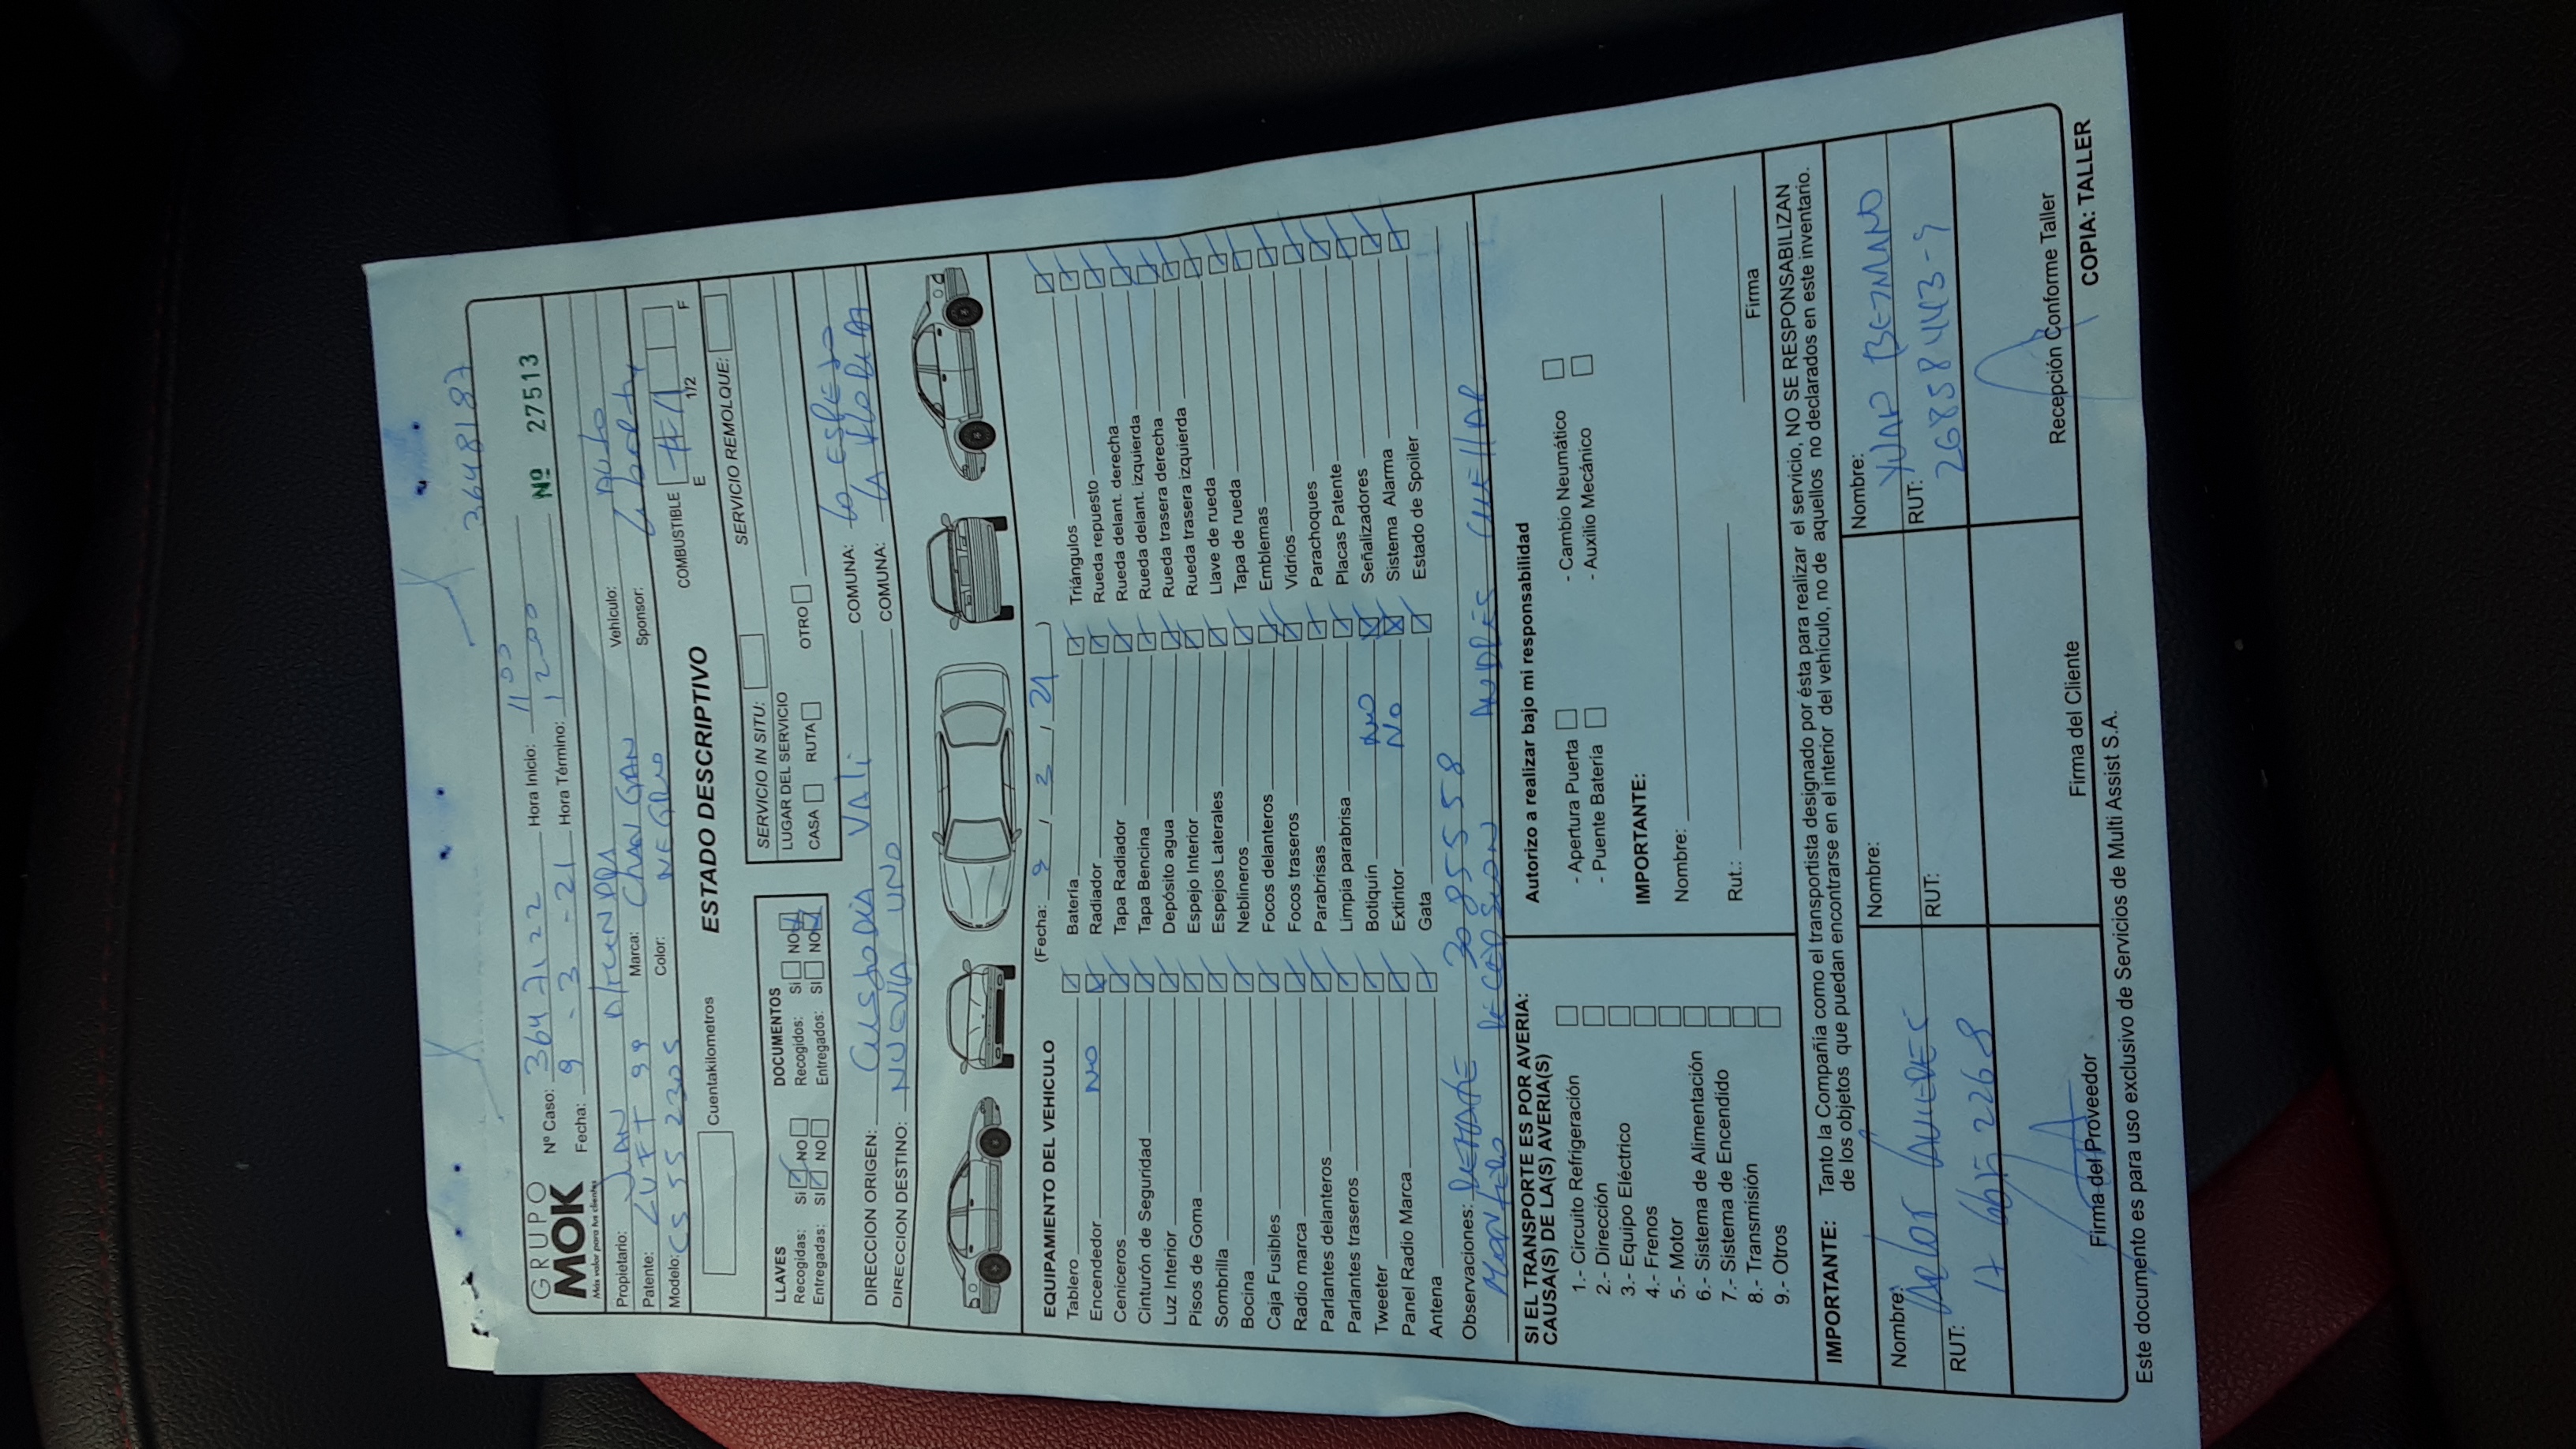 3648187
GRUPO
MOK
Más valor para tus clientes
Nº Caso: 3647122 Hora Inicio: 1100 Nº 27513
Fecha: 9 - 3 - 21 Hora Término: 1200
Propietario: Vehículo: Auto
Patente: Marca: Color: NEGRO Sponsor:
Modelo: CS 55 230 S
COMBUSTIBLE E 1/2 F
Cuentakilometros
ESTADO DESCRIPTIVO
LLAVES
Recogidas: SI NO
Entregadas: SI NO
DOCUMENTOS
Recogidos: SI NO
Entregados: SI NO
SERVICIO IN SITU:
LUGAR DEL SERVICIO
CASA RUTA OTRO
SERVICIO REMOLQUE:
DIRECCION ORIGEN: COMUNA: lo ESPEJO
DIRECCION DESTINO: NUEVA UNO COMUNA: LA
EQUIPAMIENTO DEL VEHICULO (Fecha: 9 / 3 / 21 )
Tablero
Encendedor NO
Ceniceros
Cinturón de Seguridad
Luz Interior
Pisos de Goma
Sombrilla
Bocina
Caja Fusibles
Radio marca
Parlantes delanteros
Parlantes traseros
Tweeter
Panel Radio Marca
Antena
Batería
Radiador
Tapa Radiador
Tapa Bencina
Depósito agua
Espejo Interior
Espejos Laterales
Neblineros
Focos delanteros
Focos traseros
Parabrisas
Limpia parabrisa
Botiquín NO
Extintor NO
Gata
Triángulos
Rueda repuesto
Rueda delant. derecha
Rueda delant. izquierda
Rueda trasera derecha
Rueda trasera izquierda
Llave de rueda
Tapa de rueda
Emblemas
Vidrios
Parachoques
Placas Patente
Señalizadores
Sistema Alarma
Estado de Spoiler
Observaciones: 3085558
ANDRÉS CUELLAR
SI EL TRANSPORTE ES POR AVERIA:
CAUSA(S) DE LA(S) AVERIA(S)
1.- Circuito Refrigeración
2.- Dirección
3.- Equipo Eléctrico
4.- Frenos
5.- Motor
6.- Sistema de Alimentación
7.- Sistema de Encendido
8.- Transmisión
9.- Otros
Autorizo a realizar bajo mi responsabilidad
- Apertura Puerta - Cambio Neumático
- Puente Batería - Auxilio Mecánico
IMPORTANTE:
Nombre:
Rut.: Firma
IMPORTANTE: Tanto la Compañía como el transportista designado por ésta para realizar el servicio, NO SE RESPONSABILIZAN
de los objetos que puedan encontrarse en el interior del vehículo, no de aquellos no declarados en este inventario.
Nombre:
RUT:
Firma del Proveedor
Nombre:
RUT:
Firma del Cliente
Nombre:
RUT: 26858443-9
Recepción Conforme Taller
Este documento es para uso exclusivo de Servicios de Multi Assist S.A.
COPIA: TALLER